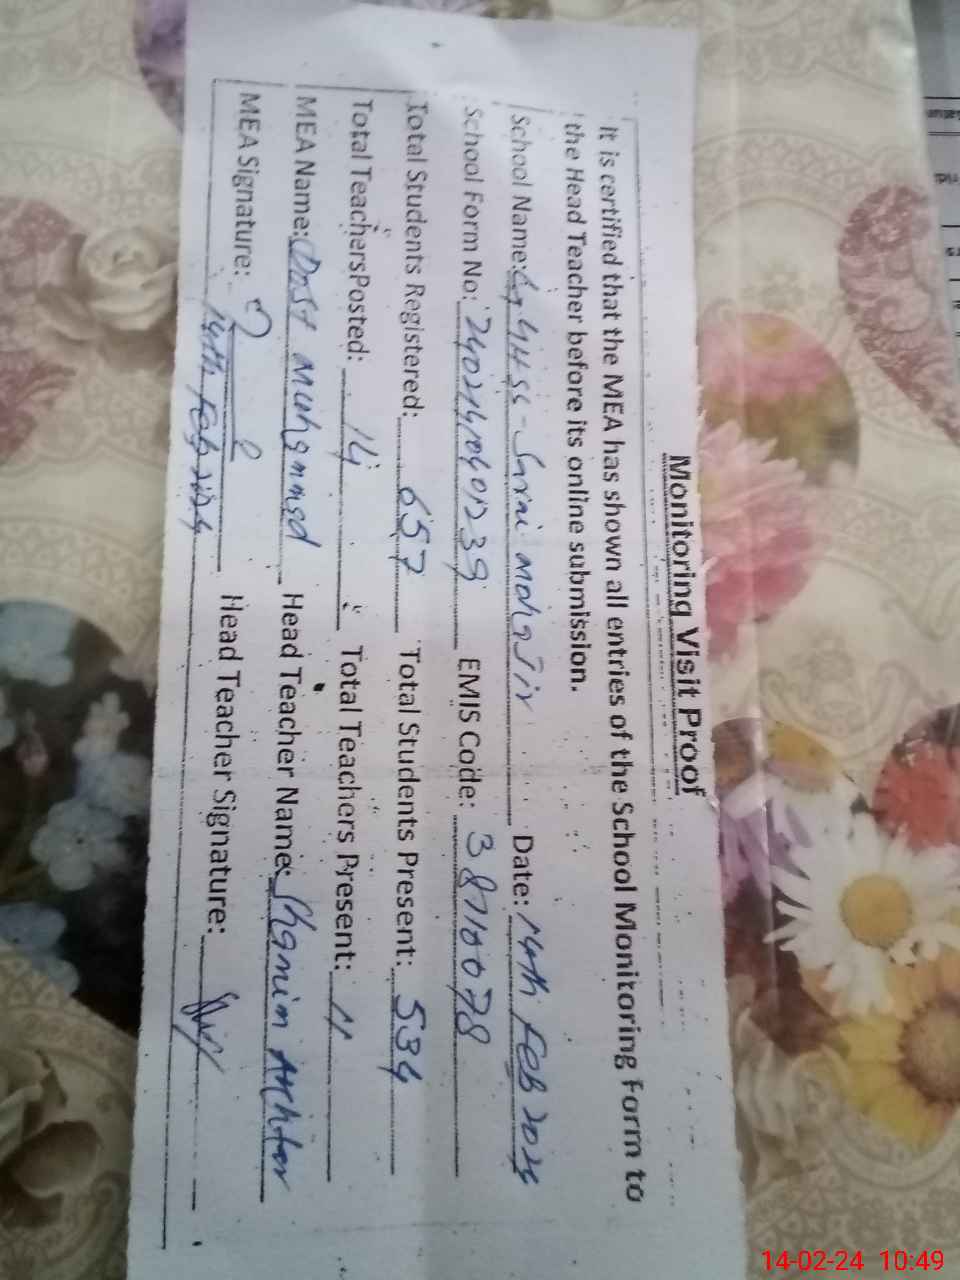 Monitoring Visit Proof
It is certified that the MEA has shown all entries of the School Monitoring Form to
the Head Teacher before its online submission.
School Name: GGHSS-Sarai mohajir Date: 14th Feb 2024
School Form No: EMIS Code: 38710078
Total Students Registered: 657 Total Students Present: 534
Total TeachersPosted: 14 Total Teachers Present: 11
MEA Name: Dost Muhammad Head Teacher Name: Shamim Akhtar
MEA Signature: Head Teacher Signature:
14th Feb 2024
14-02-24 10:49